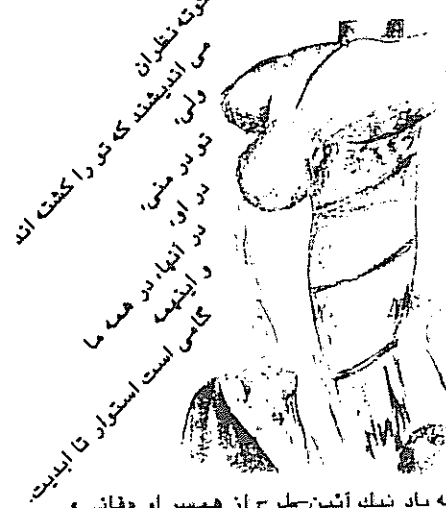 کوته نظران
می اندیشند که تو را کشته اند
ولی،
تو در منی،
در او،
در آنها، در همه ما
و اینهمه
گامی است استوار تا ابدیت.
یاد نیك آئین طرح از همسر او